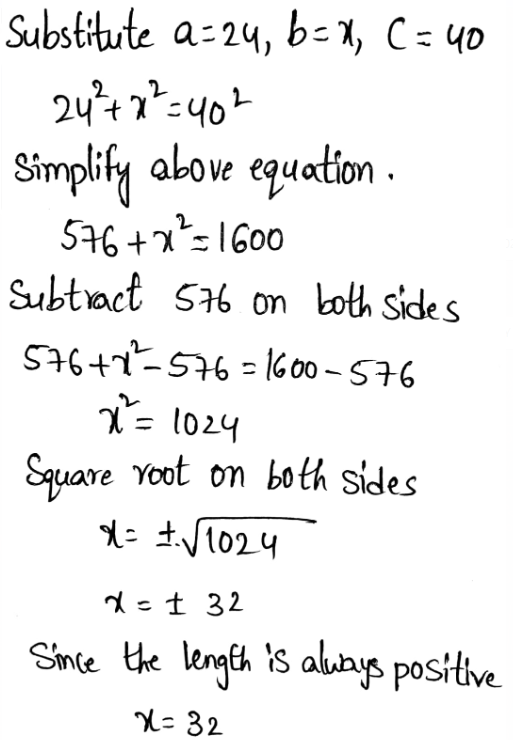 Substitute a=24, b=x, C=40
24²+x²=40²
Simplify above equation.
576+x²=1600
Subtract 576 on both sides
576+x²-576=1600-576
x²=1024
Square root on both sides
x=±√1024
x=±32
Since the length is always positive
x=32